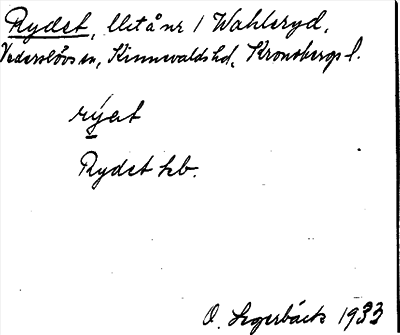 Rydet, llst å nr 1 Wahleryd,
Vederslövs sn, Kinnevalds hd, Kronobergs l.
rýet
Rydet kb.
O. Segerbäck 1933